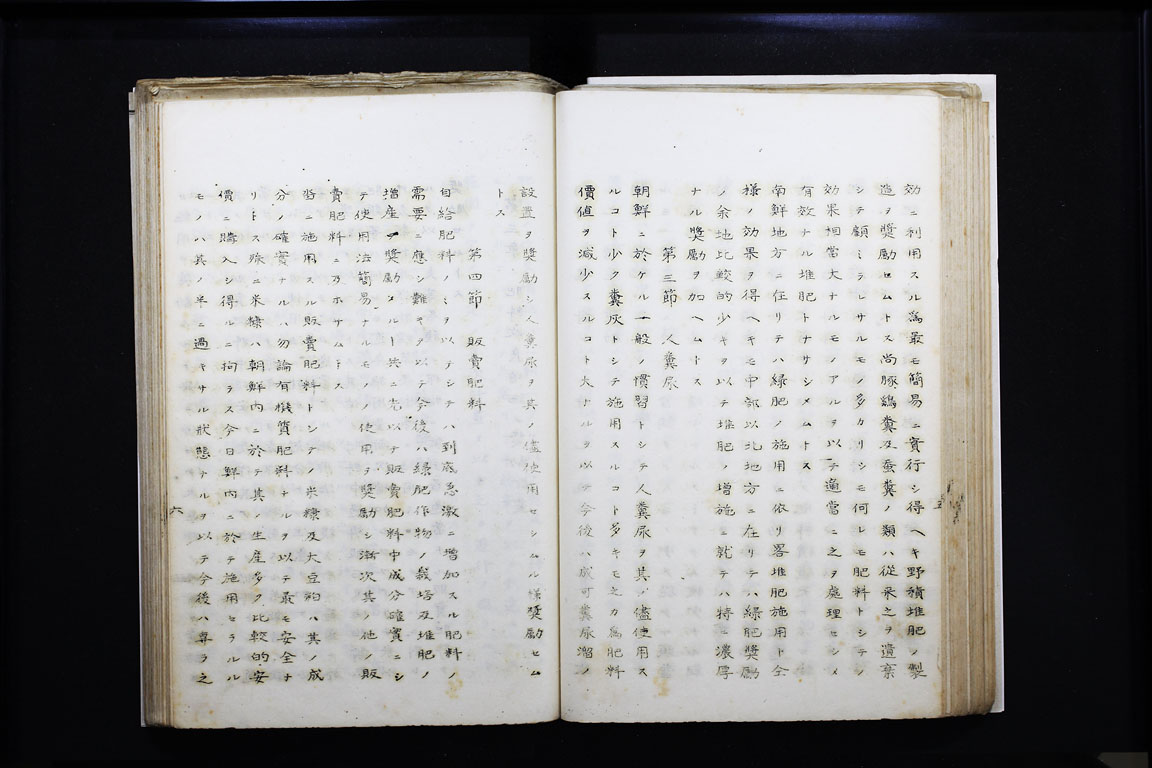 効ニ利用スル為最モ簡易ニ實行シ得ヘキ野積堆肥ノ製
造ヲ奬勵セムトス尚豚鷄糞及蚕糞ノ類ハ從来之ヲ遺棄
シテ顧ミラレサルモノ多カリシモ何レモ肥料トシテノ
効果相當大ナルモノアルヲ以テ適當ニ之ヲ處理セシメ
有效ナル堆肥トナサシメムトス
南鮮地方ニ在リテハ緑肥ノ施用ニ依リ畧堆肥施用ト全
様ノ効果ヲ得ヘキモ中部以北地方ニ在リテハ緑肥奬勵
ノ余地比較的少キヲ以テ堆肥ノ増施ニ就テハ特ニ濃厚
ナル奬勵ヲ加ヘムトス
第三節 人糞尿
朝鮮ニ於ケル一般ノ慣習トシテ人糞尿ヲ其ノ儘使用ス
ルコト少ク糞灰トシテ施用スルコト多キモ之カ為肥料
價値ヲ減少スルコト大ナルヲ以テ今後ハ成可糞尿溜ノ
五
設置ヲ奬勵シ人糞尿ヲ其ノ儘使用セシムル様奬勵セム
トス
第四節 販賣肥料
自給肥料ノミヲ以テシテハ到底急激ニ増加スル肥料ノ
需要ニ應シ難キヲ以テ今後ハ緑肥作物ノ栽培及堆肥ノ
増産ヲ奬勵スルト共ニ先以テ販賣肥料中成分確實ニシ
テ使用法簡易ナルモノノ使用ヲ奬勵シ漸次其ノ他ノ販
賣肥料ニ乃ホサムトス
當施用スル販賣肥料トシテノ米糠及大豆粕ハ其ノ成
分ノ確實ナルハ勿論有機質肥料ナルヲ以テ最モ安全ナ
リトス殊ニ米糠ハ朝鮮内ニ於テ其ノ生産多ク比較的安
價ニ購入シ得ルニ拘ラス今日鮮内ニ於テ施用セラルル
モノハ其ノ半ニ過キサル状態ナルヲ以テ今後ハ専ラ之
六